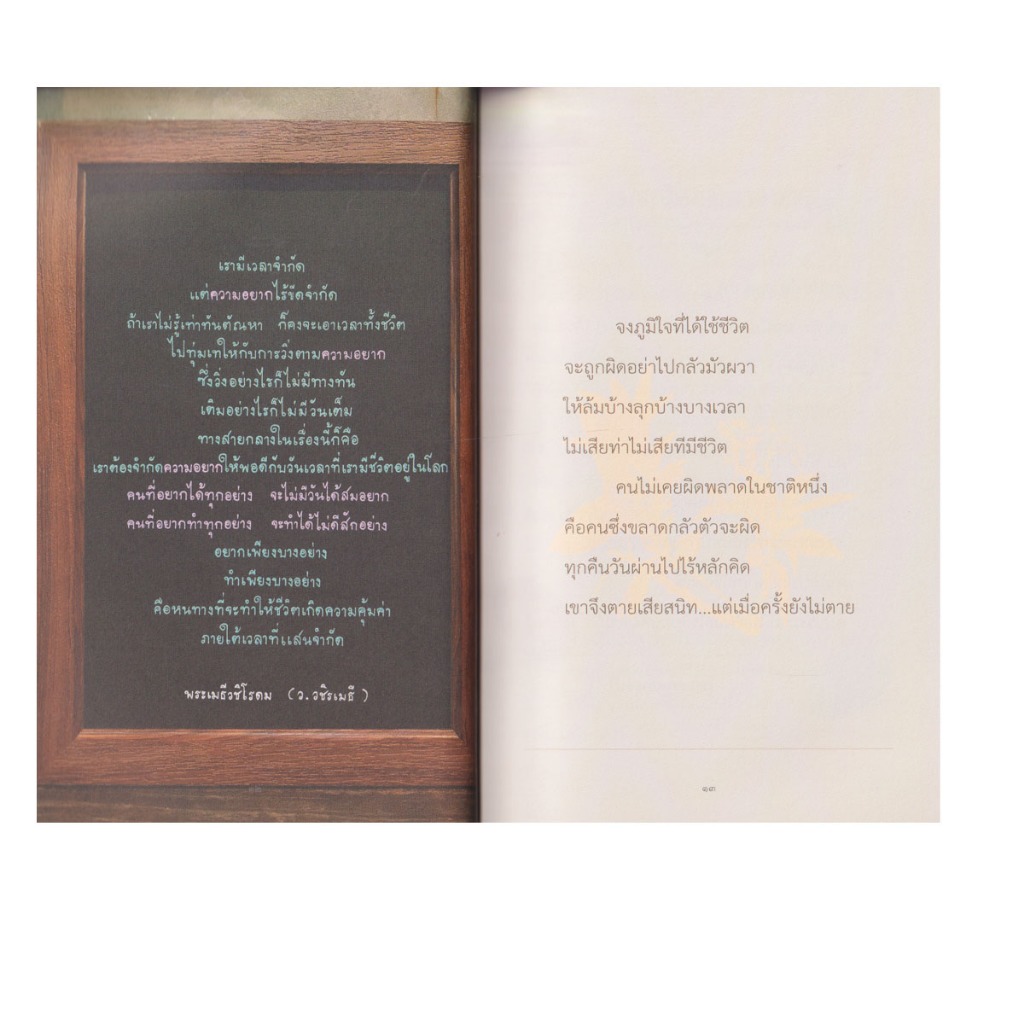 เรามีเวลาจำกัด
แต่ความอยากไร้ขีดจำกัด
ถ้าเราไม่รู้เท่าทันตัณหา ก็คงจะเอาเวลาทั้งชีวิต
ไปทุ่มเทให้กับการวิ่งตามความอยาก
ซึ่งวิ่งอย่างไรก็ไม่มีทางทัน
เติมอย่างไรก็ไม่มีวันเต็ม
ทางสายกลางในเรื่องนี้ก็คือ
เราต้องจำกัดความอยากให้พอดีกับวันเวลาที่เรามีชีวิตอยู่ในโลก
คนที่อยากได้ทุกอย่าง จะไม่มีวันได้สมอยาก
คนที่อยากทำทุกอย่าง จะทำได้ไม่ดีสักอย่าง
อยากเพียงบางอย่าง
ทำเพียงบางอย่าง
คือหนทางที่จะทำให้ชีวิตเกิดความคุ้มค่า
ภายใต้เวลาที่แสนจำกัด
พระเมธีวชิโรดม (ว.วชิรเมธี)
๑๒
จงภูมิใจที่ได้ใช้ชีวิต
จะถูกผิดอย่าไปกลัวมัวผวา
ให้ล้มบ้างลุกบ้างบางเวลา
ไม่เสียท่าไม่เสียทีมีชีวิต
คนไม่เคยผิดพลาดในชาติหนึ่ง
คือคนซึ่งขลาดกลัวตัวจะผิด
ทุกคืนวันผ่านไปไร้หลักคิด
เขาจึงตายเสียสนิท...แต่เมื่อครั้งยังไม่ตาย
๑๓